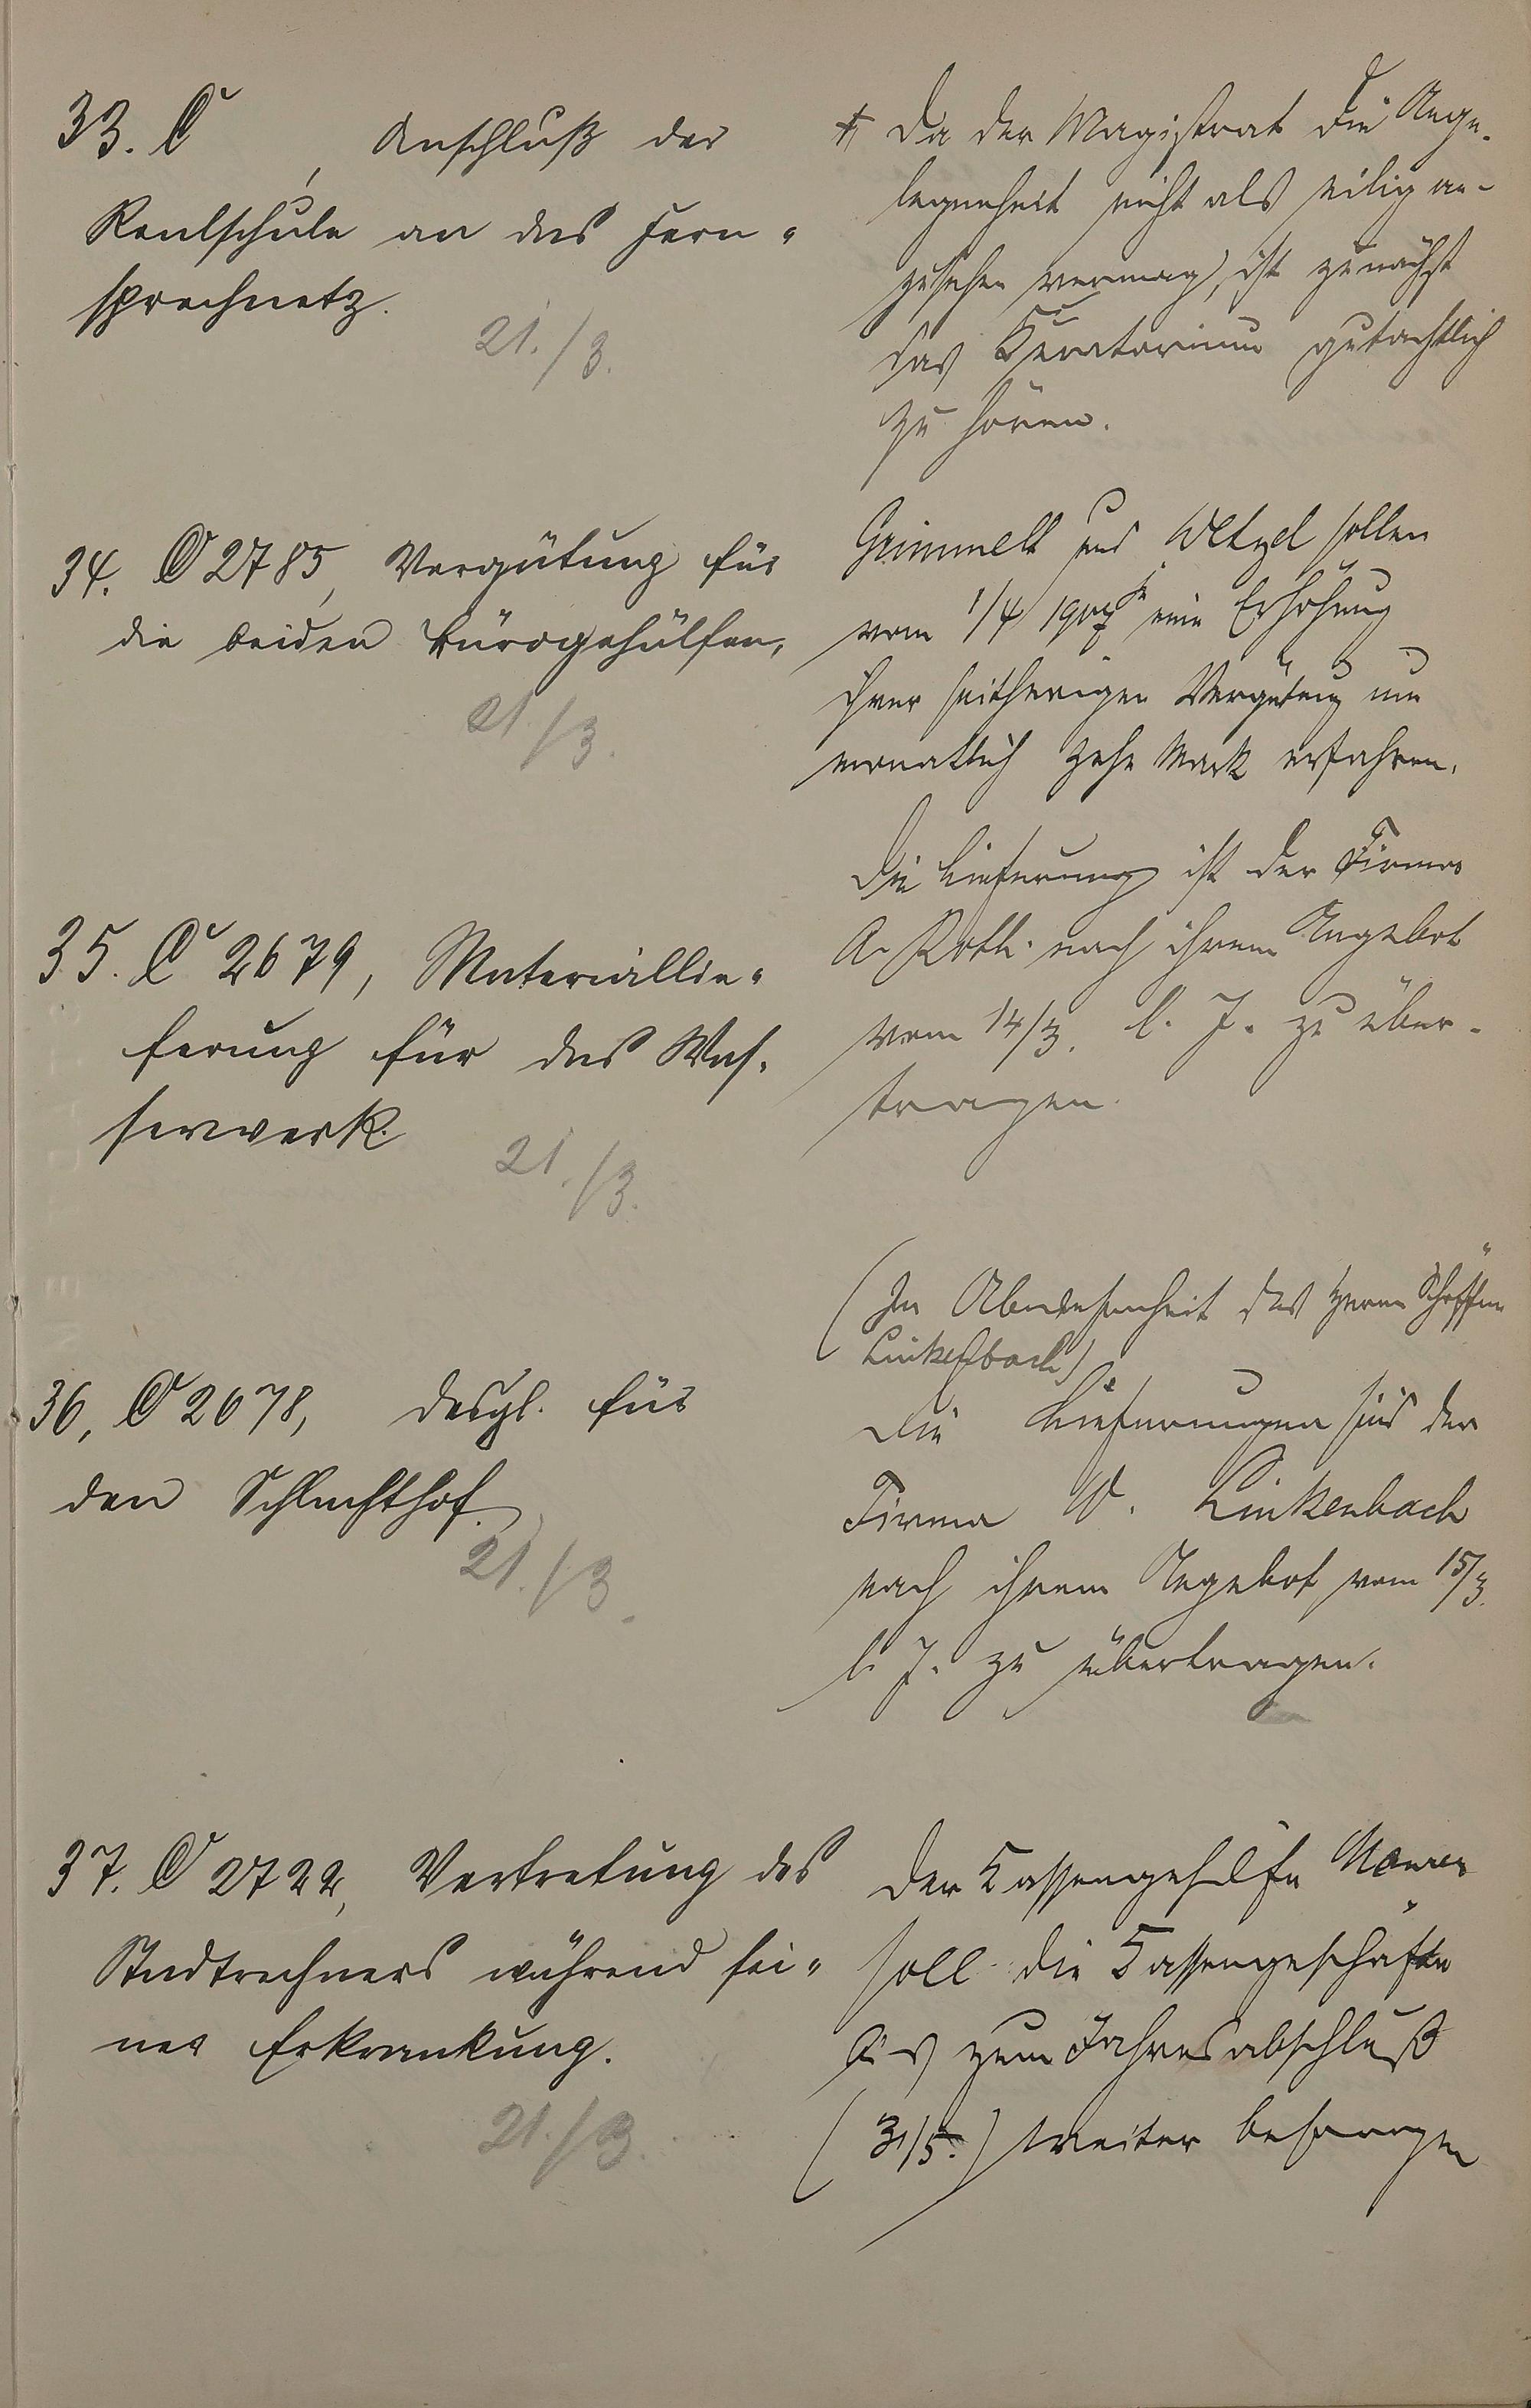 33. C , Anschluß der
Realschule an das Fern-
sprechnetz.
21./3.
Da der Magistrat die Ange-
legenheit nicht als eilig an-
zusehen vermag, ist zunächst
das Kuratorium gutachtlich
zu hören.
34. C 2785, Vergütung für
die beiden Bürogehülfen,
21./3.
Grimmell und Wetzel sollen
vom 1/4 1907 je eine Erhöhung
ihrer seitherigen Vergütung um
monatlich zehn Mark erfahren.
35. C 2679, Materiallie-
ferung für das Was-
serwerk.
21./3.
Die Lieferung ist der Firma
A. Roth nach ihrem Angebot
vom 14/3. l. J. zu über-
tragen.
36, C 2678, desgl. für
den Schlachthof.
21./3.
(In Abwesenheit des Herrn Schöffen
Linkenbach)
Die Lieferungen sind der
Firma W. Linkenbach
nach ihrem Angebot vom 15/3.
l. J. zu übertragen.
37. C 2722, Vertretung des
Stadtrechners während sei-
ner Erkrankung.
21./3.
Der Kassengehülfe
soll die Kassengeschäfte
bis zum Jahresabschluß
(31/5.) weiter besorgen